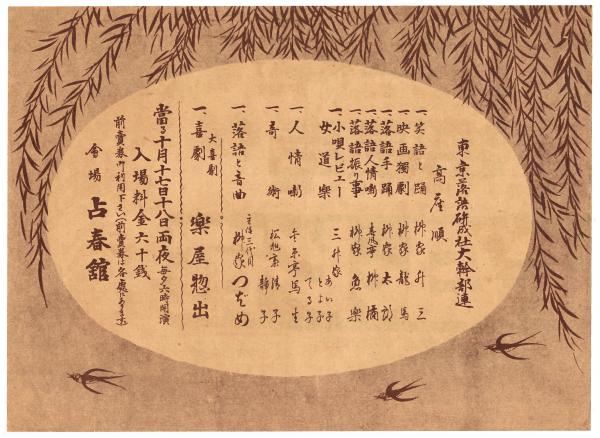 東京落語研成社大幹部連
高座順
一、笑話と踊 柳家升三
一、映画獨劇 柳家龍馬
一、落語手踊 柳家太郎
一、落語人情噺 春風亭柳橘
一、落語振り事 柳家魚樂
一、小唄レビュー
女道樂 三升家
あい子
とよ子
てる子
一、人情噺 金原亭馬生
一、奇術 松旭斎清子
静子
一、落語と音曲 主任三代目 柳家つばめ
大喜劇
一、喜劇 樂屋惣出
當る十月十七日十八日両夜 毎夕六時開演
入場料金六十銭
前賣券御利用下さい(前賣券は各處にあります)
會場 占春館